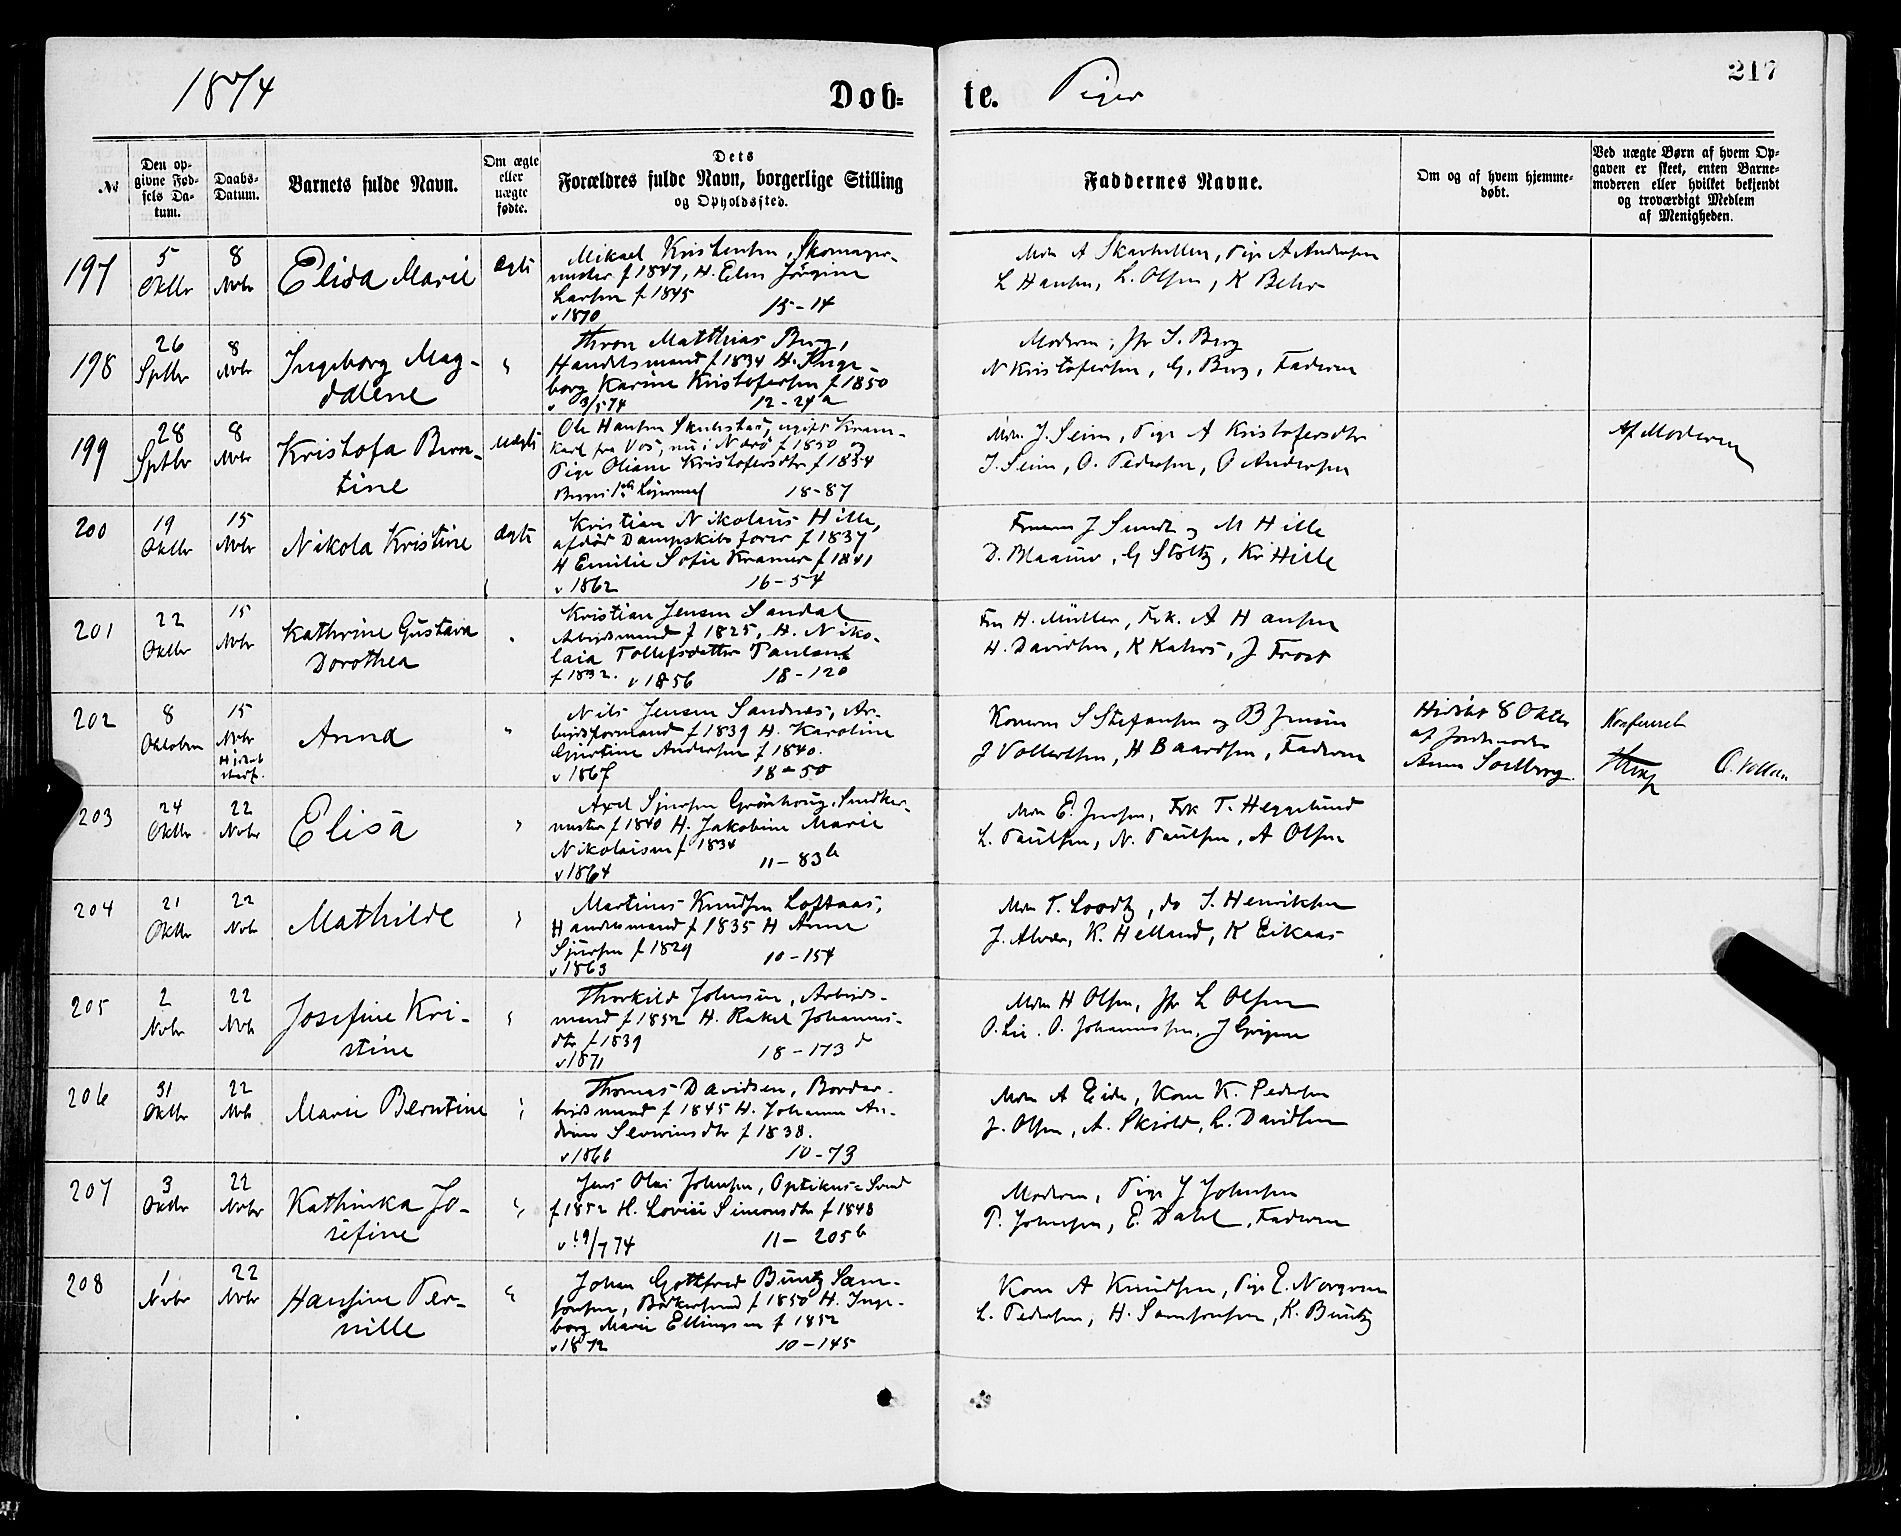 1874
Døb=
te.
Piger
217
№
Den op-
givne Fød-
sels Da-
tum.
Daabs-
Datum.
Barnets fulde Navn.
Om ægte
eller
uægte
fødte.
Dets
Forældres fulde Navn, borgerlige Stilling
og Opholdssted.
Faddernes Navne.
Om og af hvem hjemme-
døbt.
Ved uægte Børn af hvem Op-
gaven er skeet, enten Barne-
moderen eller hvilket bekjendt
og troværdigt Medlem
af Menigheden.
197
5
Oktbr
8
Nvbr
Elisa Marie
Ægte
Mikael Kristensen, Skomager-
mester f 1847, H. Elen Jörgine
Larsen f 1845
v 1870 15-14
L Hansen, L. Olsen, K Behr
198
26
Sptbr
8
Nvbr
Ingeborg Mag-
dalene
"
Thron Matthias Berg,
Handelsmand f 1834 H. Inge-
borg Karine Kristofersen f 1850
v 3/5 74 12-24a
Moderen, Jfr J. Berg
N Kristofersen, G. Berg, Faderen
199
28
Sptbr
8
Nvbr
Kristofa Bern-
tine
Uægte
Ole Hansen
karl fra Vos, nu i Nærö f 1850 og
Pige Oliane Kristofersdtr f 1854
18-87
Mdm. J. Seim, Pige A Kristofersdtr
J. Seim, O. Pedersen, O Andersen
Af Moderen
200
19
Oktbr
15
Nvbr
Nikola Kristine
Ægte
Kristian Nikolaus Hille,
afdød Dampskibsfører f 1837
H Emilie Sofie Kramer f 1841
v 1862 16-54
J Sundt og M Hille
D. Blaauw, G Stoltz, Kr Hille
201
22
Oktbr
15
Nvbr
Kathrine Gustava
Dorothea
"
Kristian Jensen Sandal
Arbeidsmand f 1825, H. Niko-
laia Tollefsdatter Paulsen
f 1832. v 1856 18-120
Fru H. Müller, Frk. A Hansen
H. Davidsen, K Kahrs, J Frost
202
8
Oktober
15
Nvbr
Hjdøbt
Anna
"
Nils Jensen Sandnes, Ar-
beidsformand f 1839 H. Karoline
Gjertine Andersen f 1840.
v 1867 18-50
Konerne S Stefansen og B Jensen
J Vollertsen, H Baardsen, Faderen
Hjdøbt 8 Oktbr
af Jordemoder
Anna Solberg.
Konfereret
203
24
Oktbr
22
Nvbr
Elisa
"
Axel Sjursen Grönhoug, Snedker-
mester f 1840 H. Jakobine Marie
Nikolaisen f 1834
v 1864 11-83b
Mdm E. Jensen, Frk T. Heggelund
L. Paulsen, N. Paulsen, A Olsen
204
21
Oktbr
22
Nvbr
Mathilde
"
Martinus Knudsen Loftaas,
Handelsmand f 1835 H Anna
Sjursen f 1829
v 1863 10-154
Mdm T. Loodtz, do J. Henriksen
J. Alver, K. Helland, K Eikaas
205
2
Nvbr
22
Nvbr
Josefine Kri-
stine
"
Thorkild Johnsen, Arbeids-
mand f 1852 H. Rakel Johannes-
dtr f 1839
v 1871 18-173d
Mdm H Olsen, Jfr L Olsen
O. Lie. O. Johannessen, J
206
31
Oktbr
22
Nvbr
Marie Berntine
"
Thomas Davidsen, Bordar-
beidsmand f 1845 H. Johanne An-
drine Severinsdtr f 1838.
v 1866 10-73
Mdm A Eide, Kone K. Pedersen
J. Olsen, A. Skjold, L. Davidsen
207
3
Oktbr
22
Nvbr
Kathinka Jo-
sefine
"
Jens Olai Johnsen, Optikus-Svend
f 1852 H. Lovise Simonsdtr f 1848
v 19/7 74 11-205b
Moderen, Pige J Johnsen
P. Johnsen, E. Dahl, Faderen
208
1
Nvbr
22
Nvbr
Hansine Per-
nille
"
Johan Gottfred Buntz Sam-
sonsen, Bödkersvend f 1850 H. Inge-
borg Marie Ellingsen f 1852
v 1872 10-145
Kone A Knudsen, Pige E.
L. Pedersen, H. Samsonsen, K. Buntz